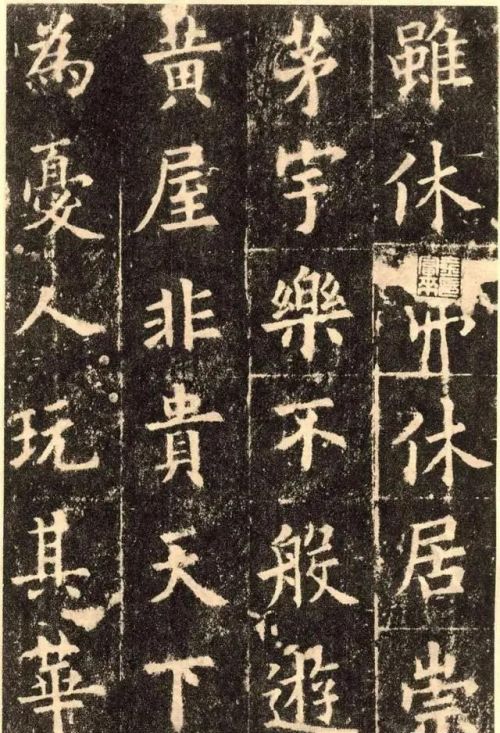 雖休休居崇
茅宇樂不般遊
黃屋非貴天下
為憂人玩其華